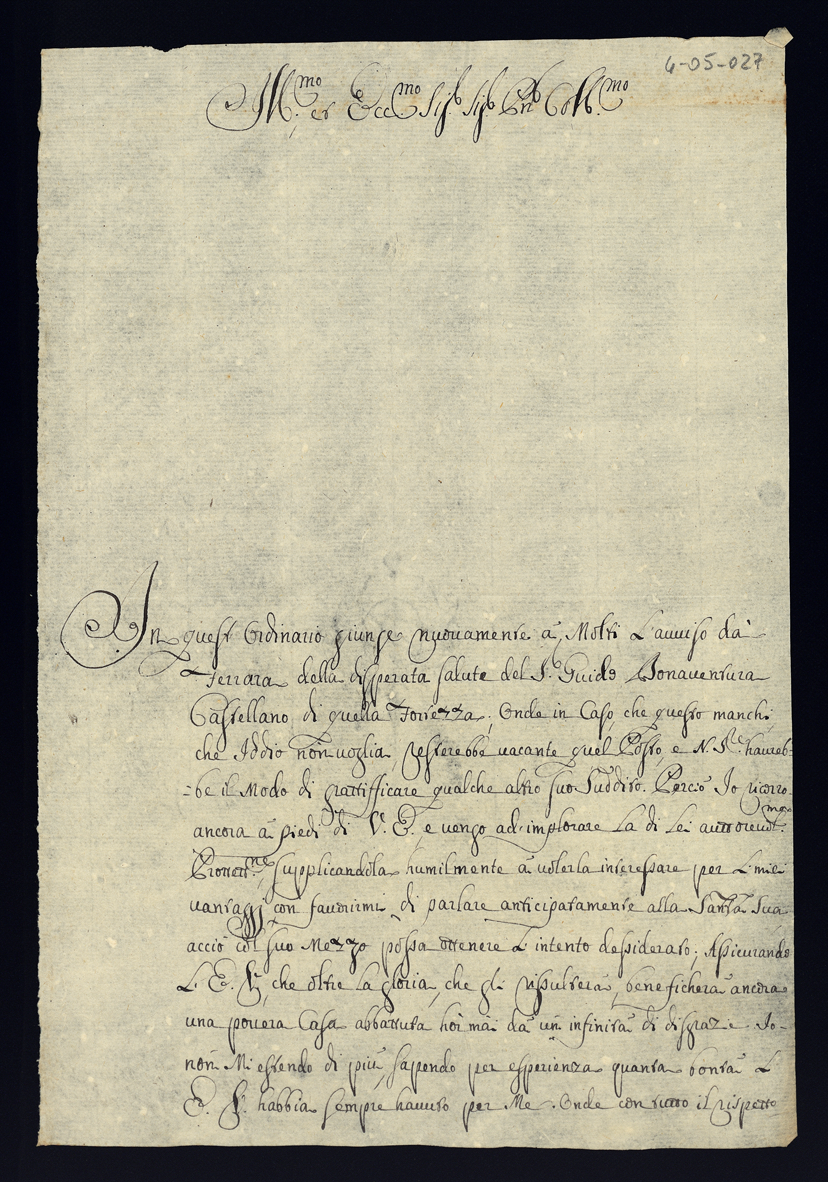 4-05-027
Ill.mo et Ecc.mo Sig.r Sig.r Pn̄ Coll.mo
In quest Ordinario giunse nuovamente à Molti l'avviso da
Ferrara della disperata salute del S.r Guido Bonaventura
Castellano di quella Fortezza; Onde in Caso, che questo manchi,
che Iddio non voglia, resterebbe vacante quel Posto, e N. S.re haureb-
=be il Modo di grattifficare qualche altro suo Suddito. Perciò Io ricorro
ancora à piedi di V. E. e vengo ad implorare la di lei auttorevol.ma
Protett.ne, supplicandola humilmente à volerla interessare per li miei
vantaggj con favorirmi di parlare anticipatamente alla Santità Sua
acciò col suo Mezzo possa ottenere l'intento dessiderato; Assicurando
L'E. V. che oltre la gloria, che gli rissulterà, beneficherà ancora
una povera Casa abbattuta hor mai da un infinità di disgrazie. Io
non Mi estendo di più, sapendo per esperienza quanta bontà L'
E. V. habbia sempre havuto per Me. Onde con tutto il rispetto